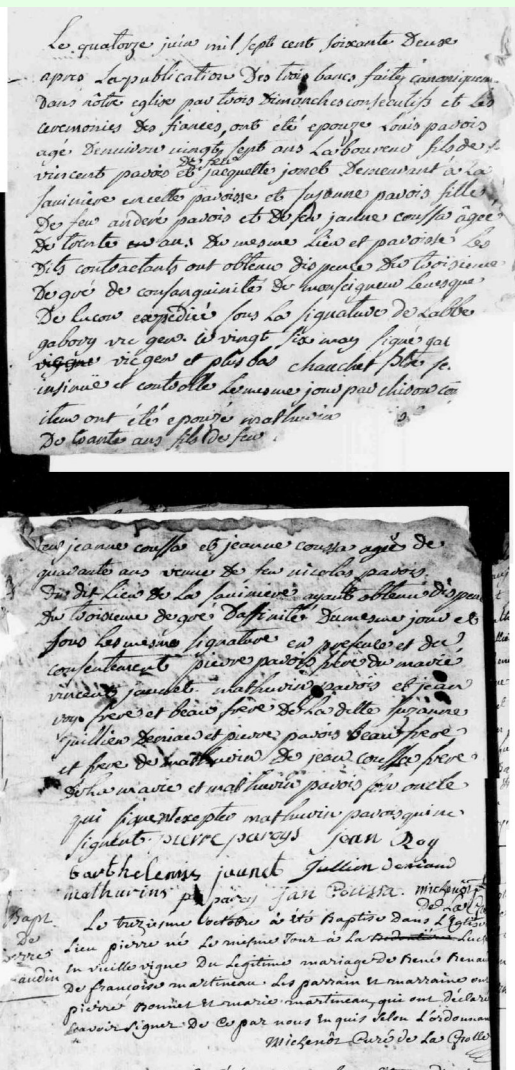 Le quatorze juin mil sept cent soixante Deux
apres La publication Des trois bancs faitte canoniquem
Dans nôtre eglise par trois Dimanches consecutifs et Les
ceremonies des fiancés, ont été epouze Louis pavois
agé Denviron vingt sept ans Laboureur fils de f
vincent pavois et De feu jacquette jonet Demeurant à La
saniniere en cette paroisse et suzanne pavois fille
De feu andere pavois et de feu janne coussa âgée
De trente ans Du mesme Lieu et paroisse Les
Dits contractants ont obtenu dispence Du troisieme
De gré de consanguinité De monseigneur Leveque
De Lucon expédiée sous La signature de Labbe
gabory vic gen. Le vingt six may signé gab
vic gen et plus bas chauchet ptre se.
insinué et controlle Le mesme jour par chison con
item ont étés epouze mathurin
De trante ans fils De feu
feu jeanne coussa et jeanne coussa agée de
quarante ans veuve De feu nicolas pavois
Du dit Lieu De La saniniere ayants obtenu dispen
Du troisieme De gré Daffinité Du mesme jour et
sous Les mesme signature en presence et du
consentement pierre pavois frere du marié
vincent jaunet mathurin pavois et jean
roy frere et beau frere De La ditte suzanne
jullien Deniaud et pierre pavois beau frere
et frere de mathurin De jean coussa frere
De La mariée et mathurin pavois son oncle
qui signent excepter mathurin pavois qui ne
signent. pierre paroys Jean Roy
barthelemis jaunet Jullien deniaud
mathurins p paroy jan Coussa. michenôt
de La Gro
Bapt
De
pierre
naudin
Le treziesme octobre a été Baptisé dans L'Eglise
Lieu pierre né Le mesme Jour à La Luc
En vieille vigne Du Legitime mariage de René Renau
De francoise martineau. Les parrain Et marraine on
pierre Bonnet Et marie martineau, qui ont Déclaré
sçavoir signer De ce par nous Enquis selon L'ordonnan
Michenôt Curé de La Grolle